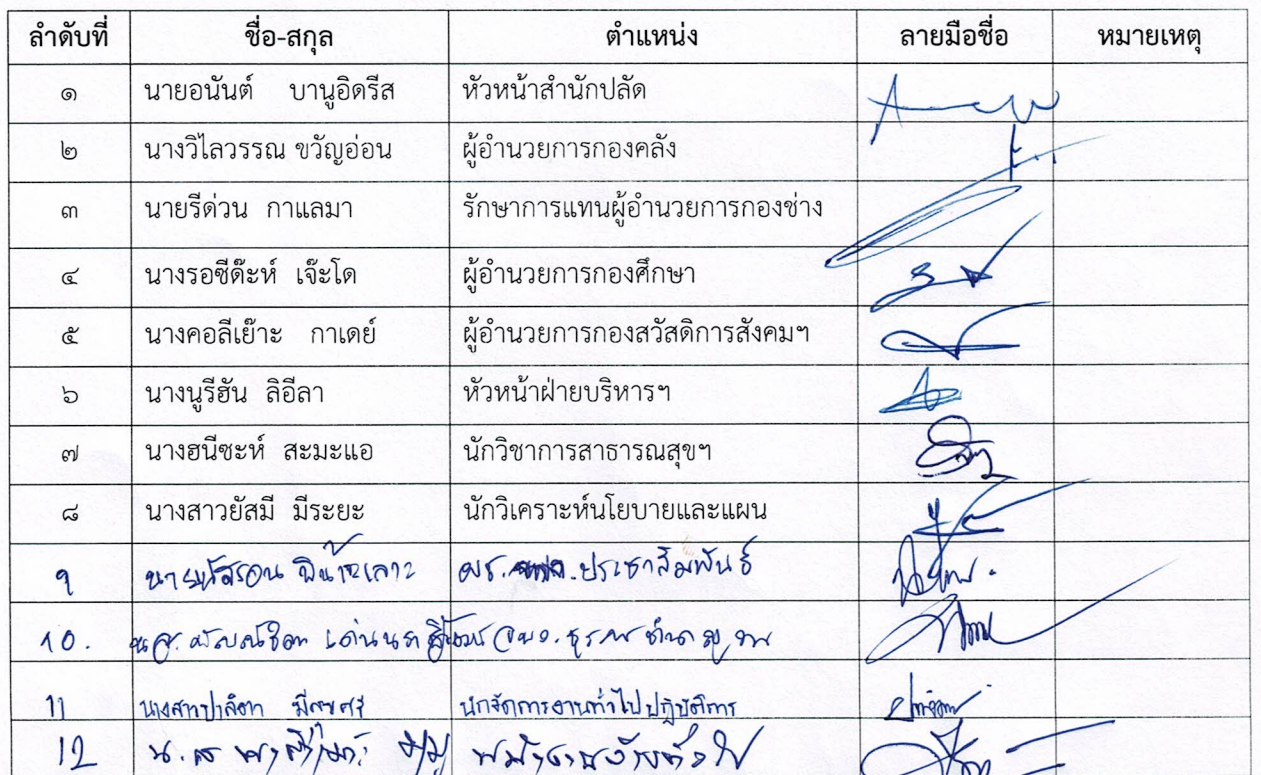 ลำดับที่ ชื่อ-สกุล ตำแหน่ง ลายมือชื่อ หมายเหตุ
๑ นายอนันต์ บานูอิดรีส หัวหน้าสำนักปลัด
๒ นางวิไลวรรณ ขวัญอ่อน ผู้อำนวยการกองคลัง
๓ นายรีด่วน กาแลมา รักษาการแทนผู้อำนวยการกองช่าง
๔ นางรอซีด๊ะห์ เจ๊ะโด ผู้อำนวยการกองศึกษา
๕ นางคอลีเย๊าะ กาเดย์ ผู้อำนวยการกองสวัสดิการสังคมฯ
๖ นางนูรีฮัน ลิอีลา หัวหน้าฝ่ายบริหารฯ
๗ นางฮนีซะห์ สะมะแอ นักวิชาการสาธารณสุขฯ
๘ นางสาวยัสมี มีระยะ นักวิเคราะห์นโยบายและแผน
๙ ผช. ประชาสัมพันธ์
10. น.ส. จพง.ธุรการชำนาญงาน
11 นางสาวปาลิตา มีสุขศรี นักจัดการงานทั่วไปปฏิบัติการ
12 น.ส พนักงานจ้างทั่วไป